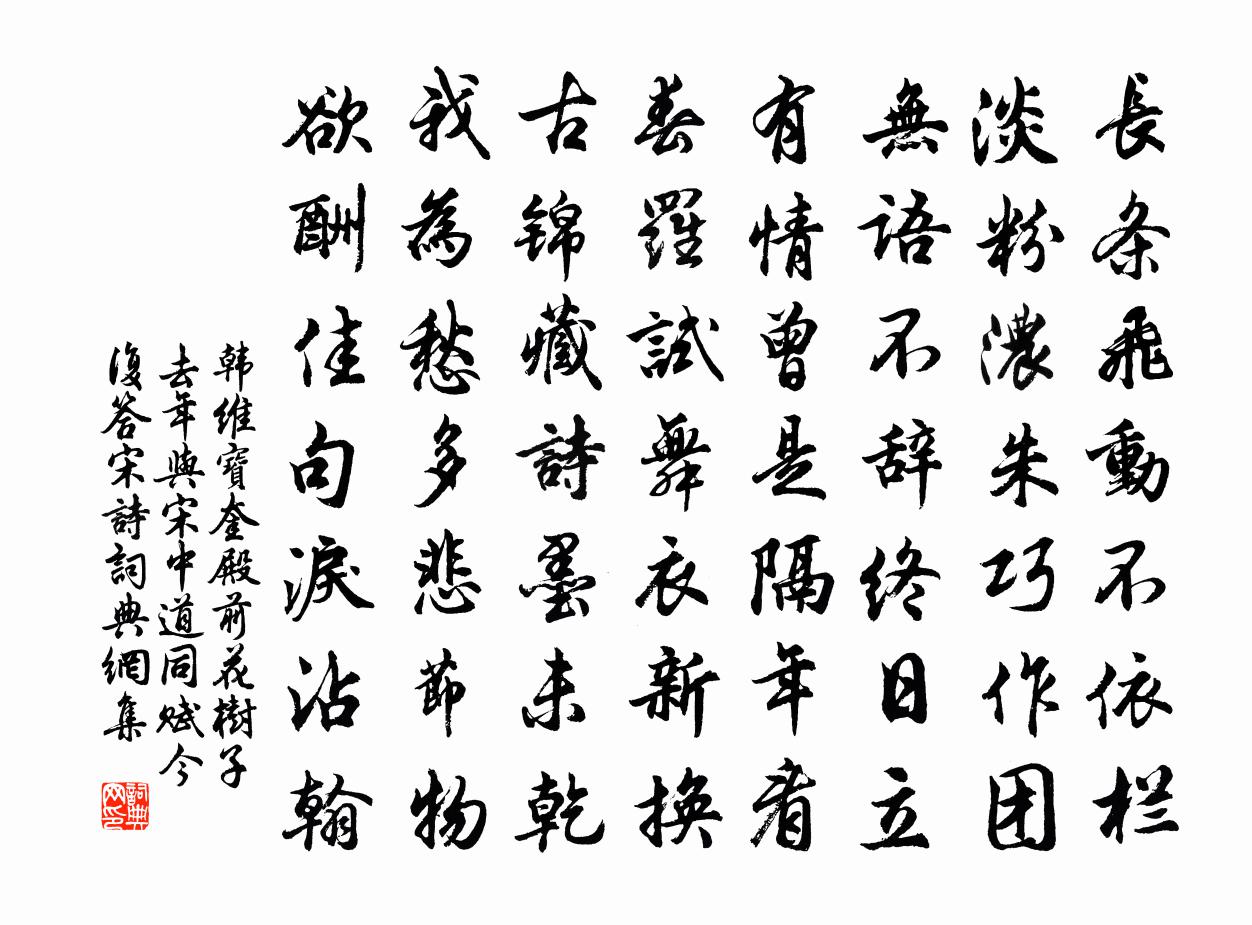 長条飛動不依栏
淡粉濃朱巧作团
無語不辞终日立
有情曾是隔年看
春羅試舞衣新換
古锦藏詩墨未乾
我為愁多悲節物
欲酬佳句淚沾翰
韩维寶奎殿前花樹子
去年與宋中道同赋今
復答宋詩詞典網集
詞典
网印